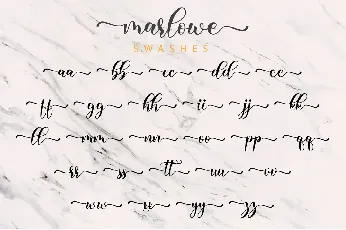 marlowe
SWASHES
aa bb cc dd ee
ff gg hh ii jj kk
ll mm nn oo pp qq
rr ss tt uu vv
ww xx yy zz